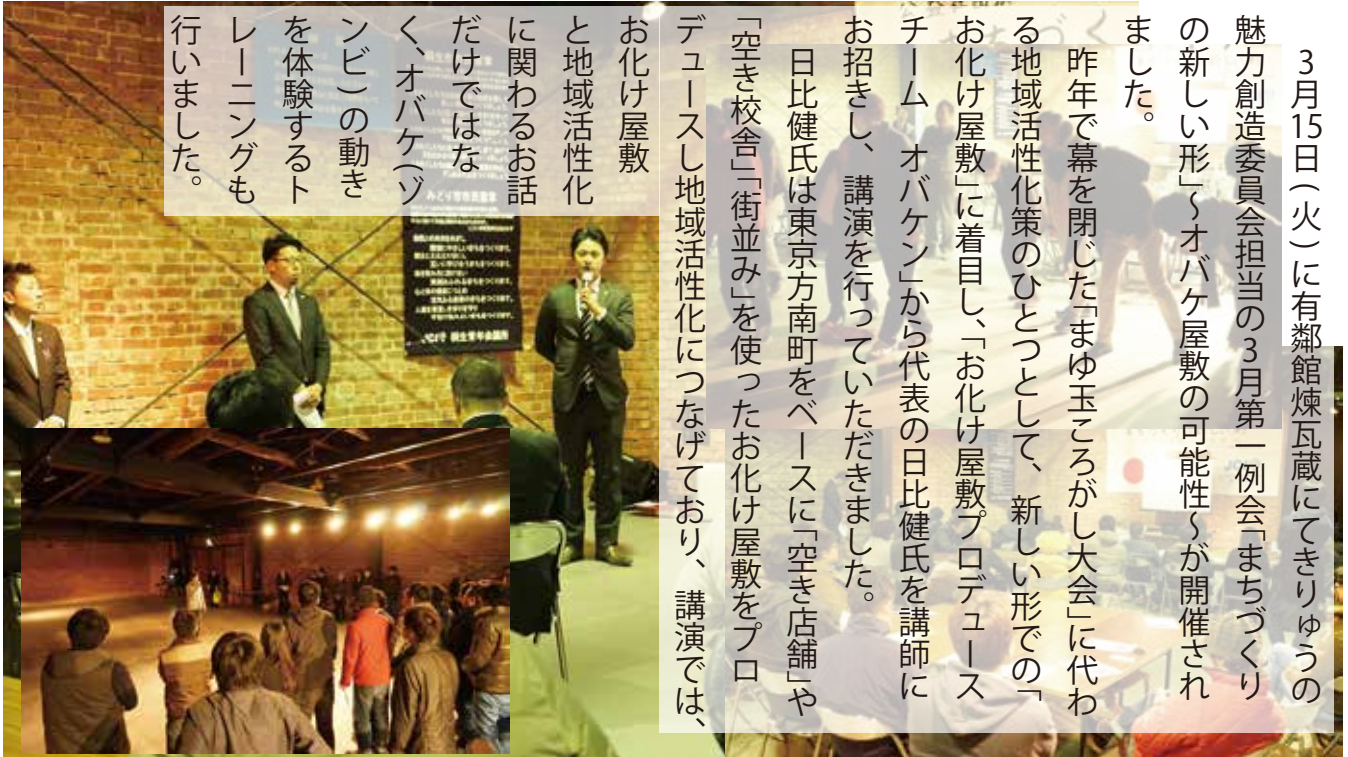 3月15日(火)に有鄰館煉瓦蔵にてきりゅうの
魅力創造委員会担当の3月第一例会「まちづくり
の新しい形」～オバケ屋敷の可能性～が開催され
ました。
昨年で幕を閉じた「まゆ玉ころがし大会」に代わ
る地域活性化策のひとつとして、新しい形での「
お化け屋敷」に着目し、「お化け屋敷プロデュース
チーム　オバケン」から代表の日比健氏を講師に
お招きし、講演を行っていただきました。
日比健氏は東京方南町をベースに「空き店舗」や
「空き校舎」「街並み」を使ったお化け屋敷をプロ
デュースし地域活性化につなげており、講演では、
お化け屋敷
と地域活性化
に関わるお話
だけではな
く、オバケ(ゾ
ンビ)の動き
を体験するト
レーニングも
行いました。
みどり市市民憲章
桐生青年会議所